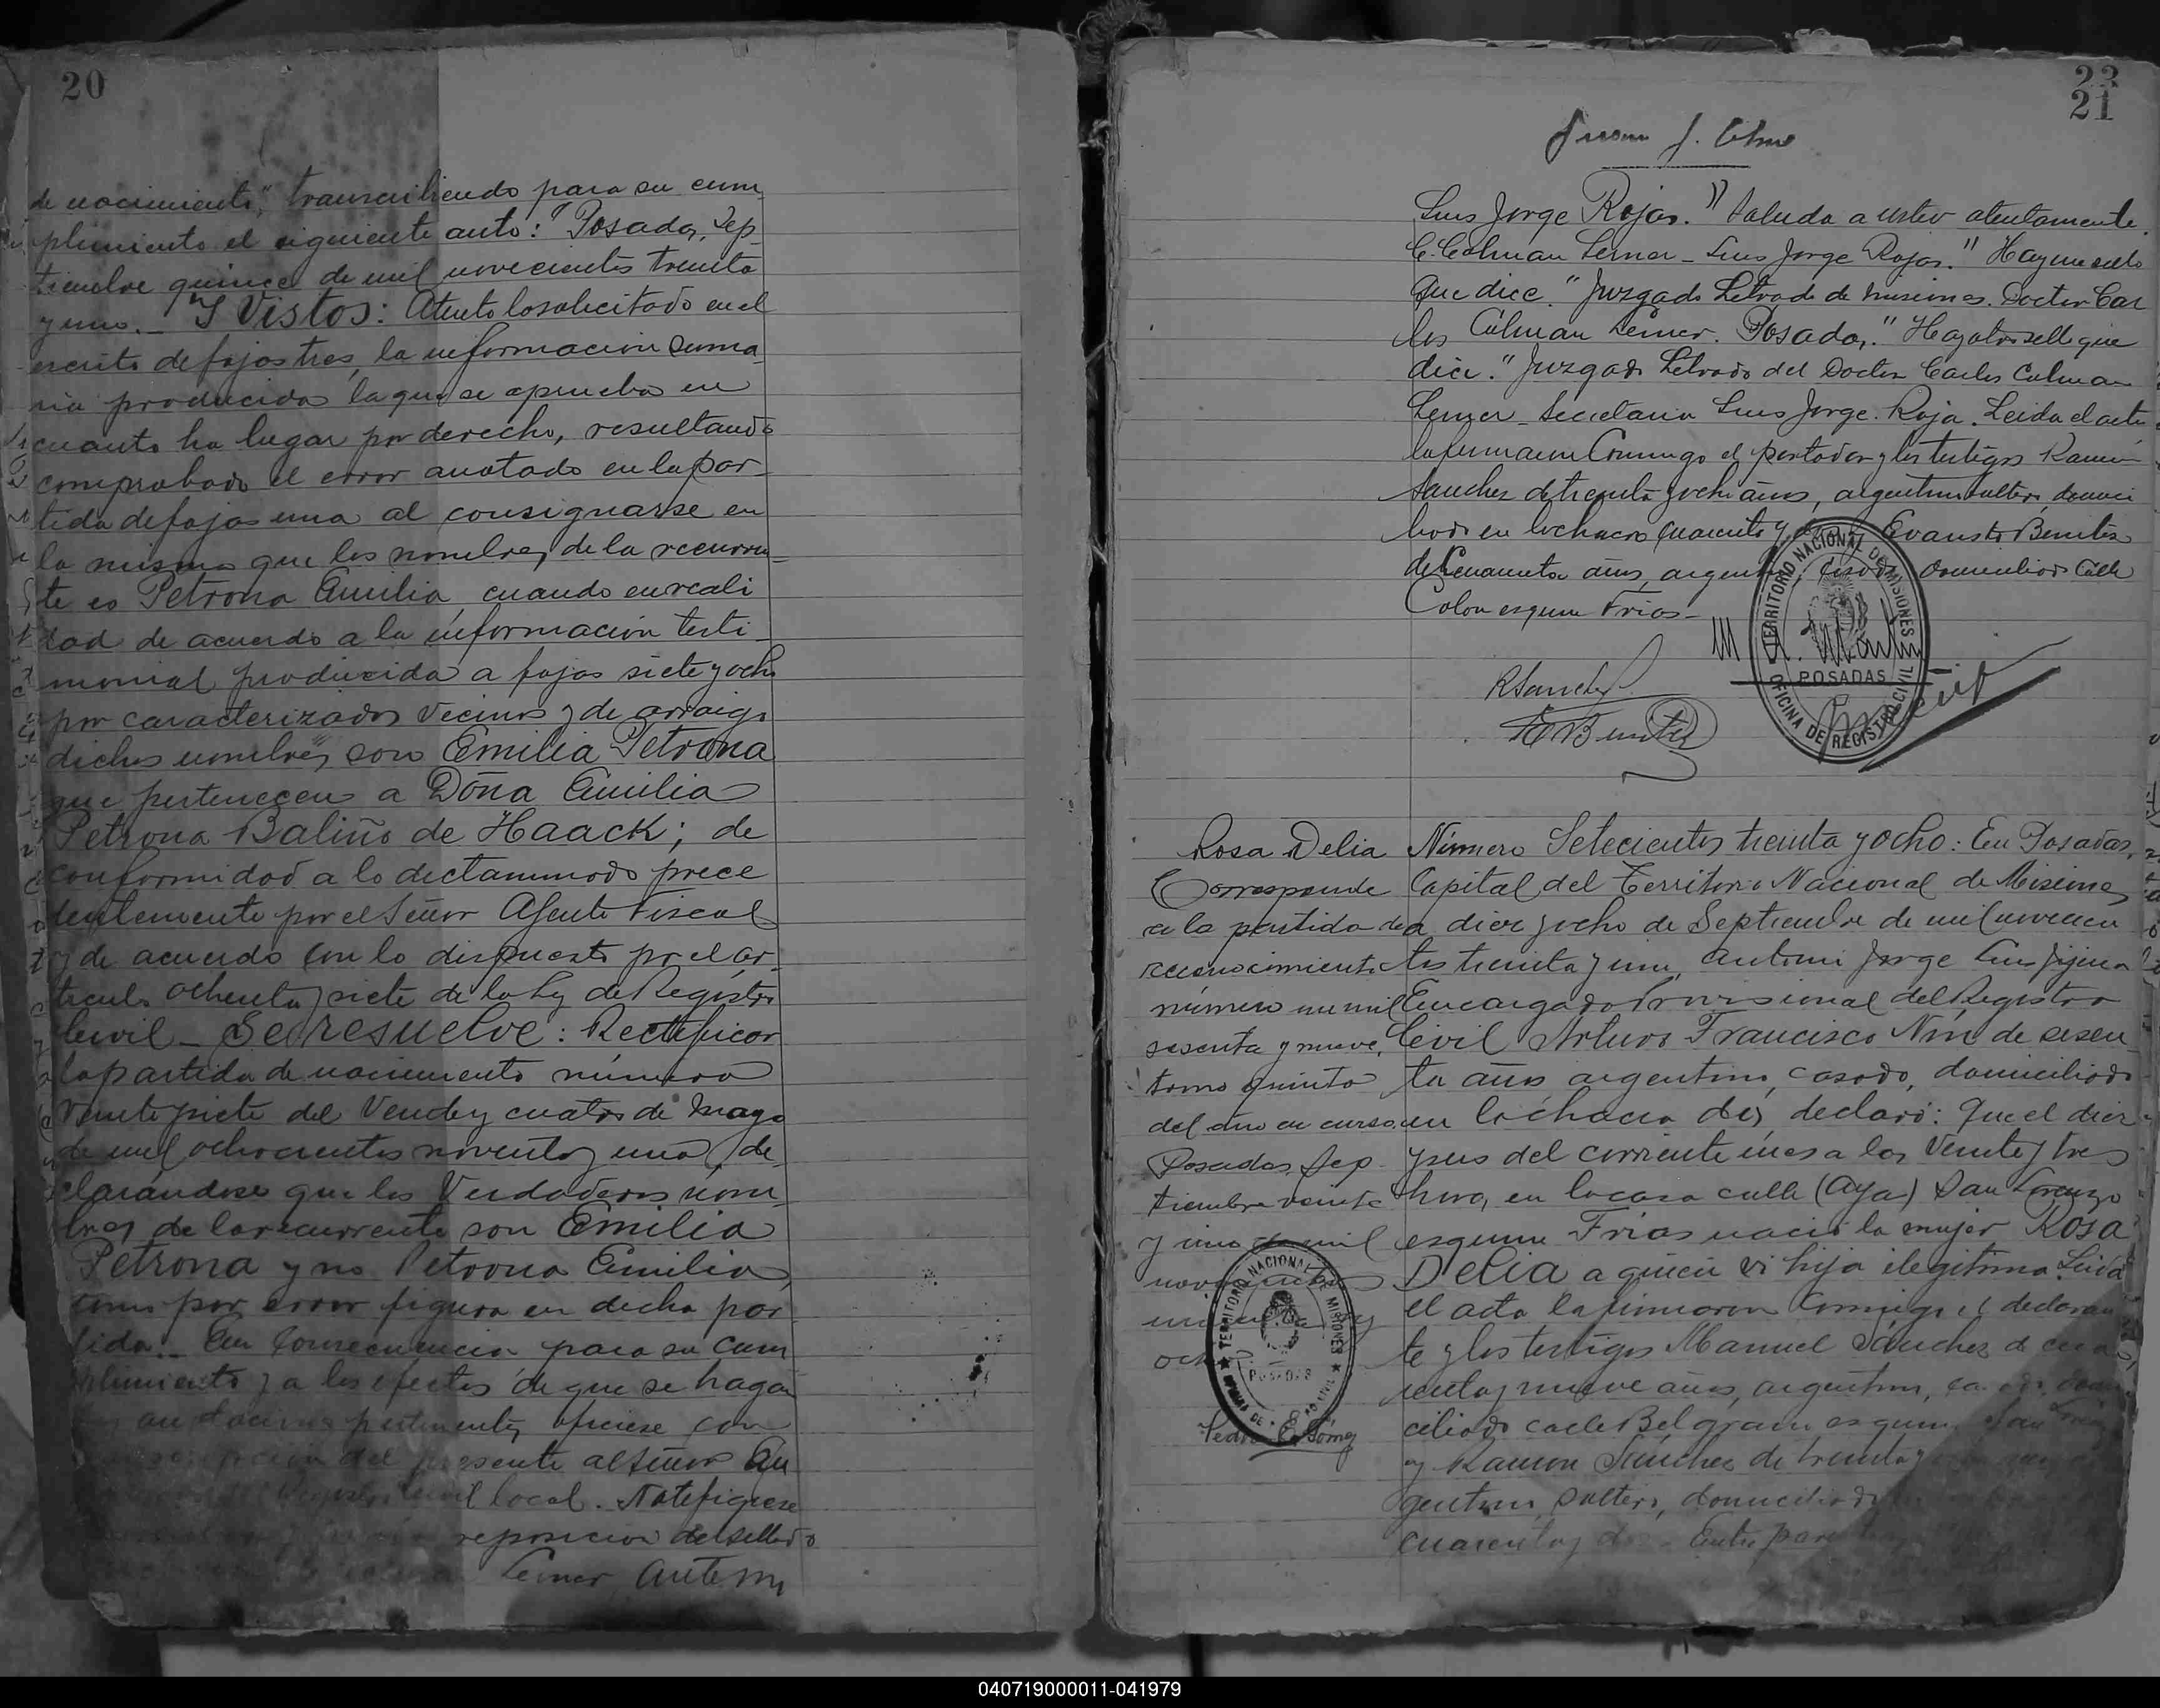 20
de nacimiento", transcribiendo para su cum
plimiento el siguiente auto: "Posadas, Sep
tiembre quince de mil novecientos treinta
y uno. _ "Y Vistos: Atento lo solicitado en el
escrito de fojas tres, la informacion suma
ria producida la que se aprueba en
cuanto ha lugar por derecho, resultando
comprobado el error anotado en la par
tida de fojas una al consignarse en
la misma que los nombres de la recurren
te es Petrona Emilia, cuando en reali
dad de acuerdo a la informacion testi
monial producida a fojas siete y ocho
por caracterizados vecinos y de arraigo
dichos nombres son Emilia Petrona
que pertenecen a Doña Emilia
Petrona Baliño de Haack; de
conformidad a lo dictaminado prece
dentemente por el Señor Agente Fiscal
y de acuerdo con lo dispuesto por el ar
ticulo ochenta y siete de la Ley de Registro
Civil _ Se resuelve: Rectificar
la partida de nacimiento número
veinte y siete del Veinte y cuatro de Mayo
de mil ochocientos noventa y uno, de
clarándose que los Verdaderos nom
bres de la recurrente son Emilia
Petrona y no Petrona Emilia,
como por error figura en dicha par
tida. _ En Consecuencia para su cum
plimiento y a los efectos de que se hagan
anotaciones pertinentes, ofíciese con
transcripción del presente al Señor En
Registro Civil local. Notifiquese
reposicion del sellado
Lerner Ante mi
23
21
Luis Jorge Rojas." Saluda a usted atentamente.
C. Colman Lerner _ Luis Jorge Rojas." Hay un sello
que dice. "Juzgado Letrado de Misiones. Doctor Car
los Colman Lerner. Posadas." Hay otro sello que
dice. "Juzgado Letrado del Doctor Carlos Colman
Lerner _ Secretaria Luis Jorge Roja. Leida el acta
la firmaron Conmigo el portador y los testigos Ramon
Sanchez de treinta y ocho años, argentino soltero, domici
liado en la chacra cuarenta y Evaristo Benites
de Cincuenta años, argentino, casado, domiciliado Calle
Colon esquina Frias _
TERRITORIO NACIONAL DE MISIONES
POSADAS
OFICINA DE REGISTRO CIVIL
R Sanchez
E Benitez
Rosa Delia
Corresponde
a la partida de
reconocimiento
número un mil
sesenta y nueve,
tomo quinto
del año en curso.
Posadas, Sep
tiembre veinte
y uno de mil
Número Setecientos treinta y ocho: En Posadas,
Capital del Territorio Nacional de Misiones
a diez y ocho de Septiembre de mil novecien
tos treinta y uno, ante mi Jorge Luis Jijena
Encargado Provisional del Registro
Civil Arturo Francisco Nin de sesen
ta años argentino, casado, domiciliado
en la chacra dos, declaró: Que el diez
y seis del corriente mes a las Veinte y tres
horas, en la casa calle (Aya) San Lorenzo
esquina Frias nació la mujer Rosa
Delia a quien vi hija ilegitima. Leida
el acta la firmaron Conmigo el declaran
te y los testigos Manuel Sánchez de cua
renta y nueve años, argentino,
ciliado calle Belgrano esquina San
y Ramon Sánchez de treinta y
gentino, soltero, domiciliado
cuarenta y dos. Entre pare
TERRITORIO NACIONAL DE MISIONES
POSADAS
Pedro E. Gómez
040719000011-041979